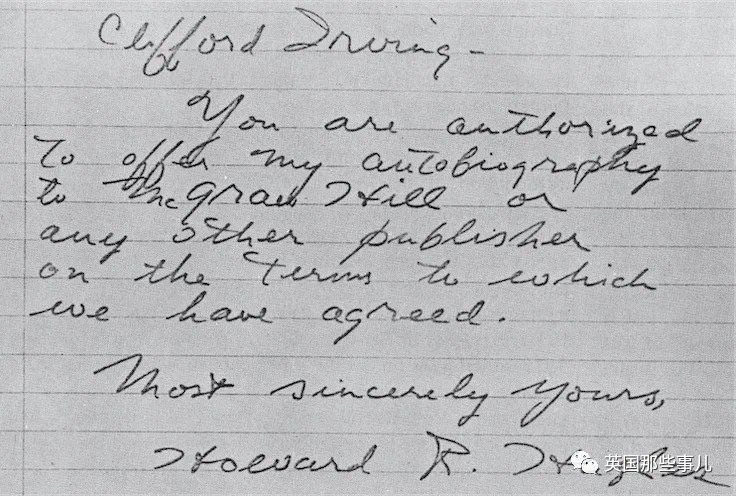 Clifford Irving -
You are authorized
to offer my autobiography
to McGraw Hill or
any other publisher
on the terms to which
we have agreed.
Most sincerely yours,
Howard R. Hughes
英国那些事儿